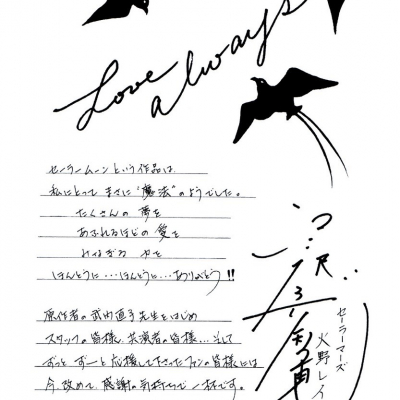 Love
always
セーラームーンという作品は
私にとって まさに"魔法"のようでした。
たくさんの 夢を
あふれるほどの 愛を
みなぎる 力を
ほんとうに…ほんとうに…ありがとう!!
原作者の武内直子先生をはじめ
スタッフの皆様、共演者の皆様…そして
ずっと ずーっと 応援して下さったファンの皆様には
今、改めて、感謝の気持ちで一杯です。
セーラーマーズ
火野レイ